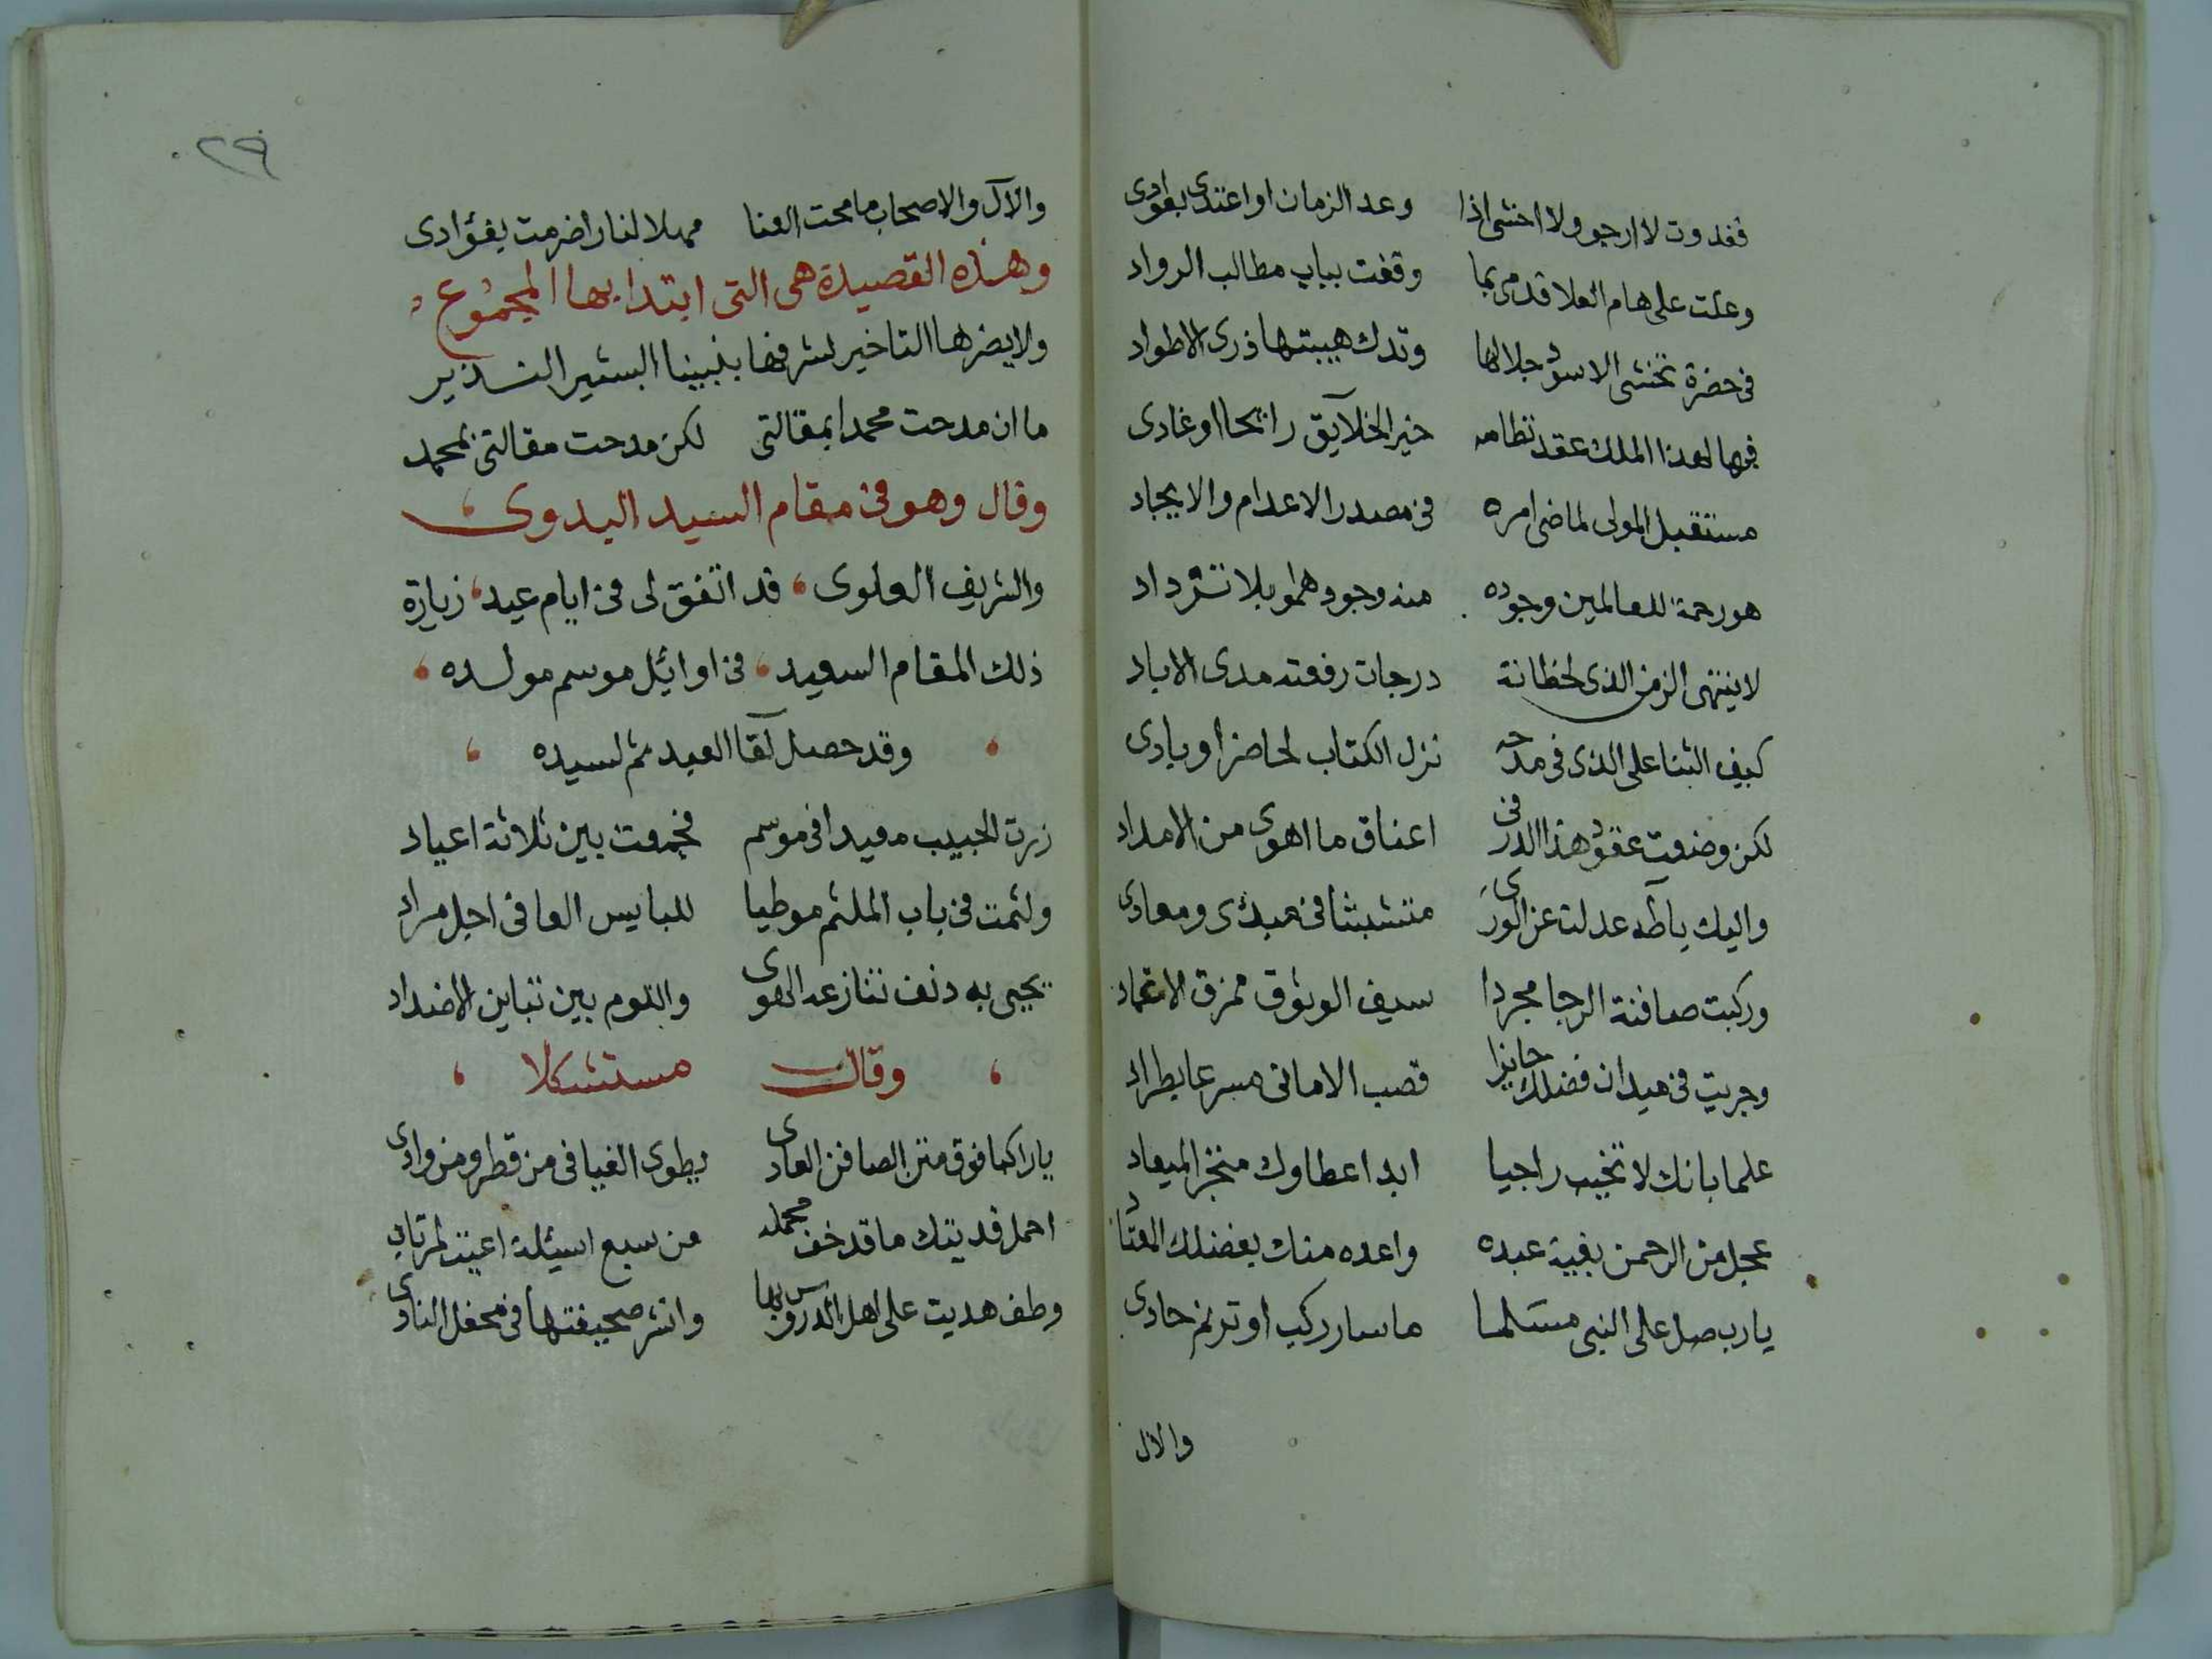 فغدوت لا ارجو ولا اخشى اذا وعد الزمان او اعتدى بعوادى
وعلت على هام العلا قدمى بما وقفت بباب مطالب الرواد
فى حضرة تخشى الاسود جلالها وتدك هيبتها ذرى الاطواد
فيها لهذا الملك عقد نظامه خير الخلايق رائحا او غادى
مستقبل المولى لماضى امره فى مصدر الاعدام والايجاد
هو رحمة للعالمين وجوده منه وجودهمو بلا ترداد
لا ينتهى الزمن الذى لحظاته درجات رفعته مدى الاباد
كيف الثنا على الذى فى مدحه نزل الكتاب لحاضر او بادى
لكن وضعت عقود هذا الدر فى اعناق ما اهوى من الامداد
واليك يا طه عدلت عن الورى متشبثا فى مبدئى ومعادى
وركبت صافنة الرجا مجردا سيف الوثوق ممزق الاغماد
وجريت فى ميدان فضلك حايزا قصب الامانى مسرعا بطراد
علما بانك لا تخيب راجيا ابدا عطاوك منجز الميعاد
عجل من الرحمن بغية عبده واعده منك بفضلك المعتاد
يارب صل على النبى مسلما ما سار ركب او ترنم حادى
والال
٢٩
والآل والاصحاب ما محت الغنا مهلا لنار اضرمت بفؤادى
وهذه القصيدة هى التى ابتدا بها المجموع
ولا يضرها التاخير لشرفها بنبينا البشير النذير
ما ان مدحت محمدا بمقالتى لكن مدحت مقالتى بمحمد
وقال وهو فى مقام السيد البدوى
والشريف العلوى، قد اتفق لى فى ايام عيد، زيارة
ذلك المقام السعيد، فى اوائيل موسم مولده،
، وقد حصل لقا العيد ثم لسيده ،
زرت الحبيب معيدا فى موسم فجمعت بين ثلاثة اعياد
ولثمت فى باب الملثم موطيا للبايس العافى اجل مراد
يحيى به دنف تنازعه الهوى واللوم بين تباين الاضداد
، وقال مستشكلا ،
يا راكبا فوق متن الصافن العادى يطوى الفيافى من قطر ومن وادى
احمل فديتك ما قد خف محمله من سبع اسيئلة اعيت
وطف هديت على اهل الدروس بها وانشر صحيفتها فى محفل النادى